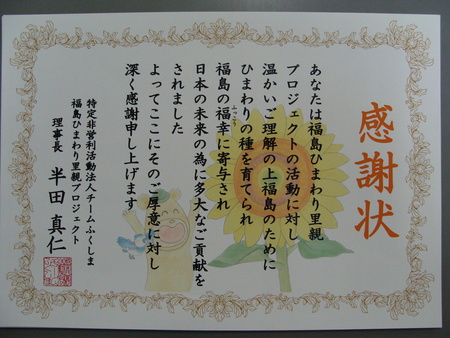 感謝状
あなたは福島ひまわり里親
プロジェクトの活動に対し
温かいご理解の上福島のために
ひまわりの種を育てられ
福島の福幸に寄与され
ふっこう
日本の未来の為に多大なご貢献を
されました
よってここにそのご厚意に対し
深く感謝申し上げます
特定非営利活動法人チームふくしま
福島ひまわり里親プロジェクト
理事長 半田 真仁